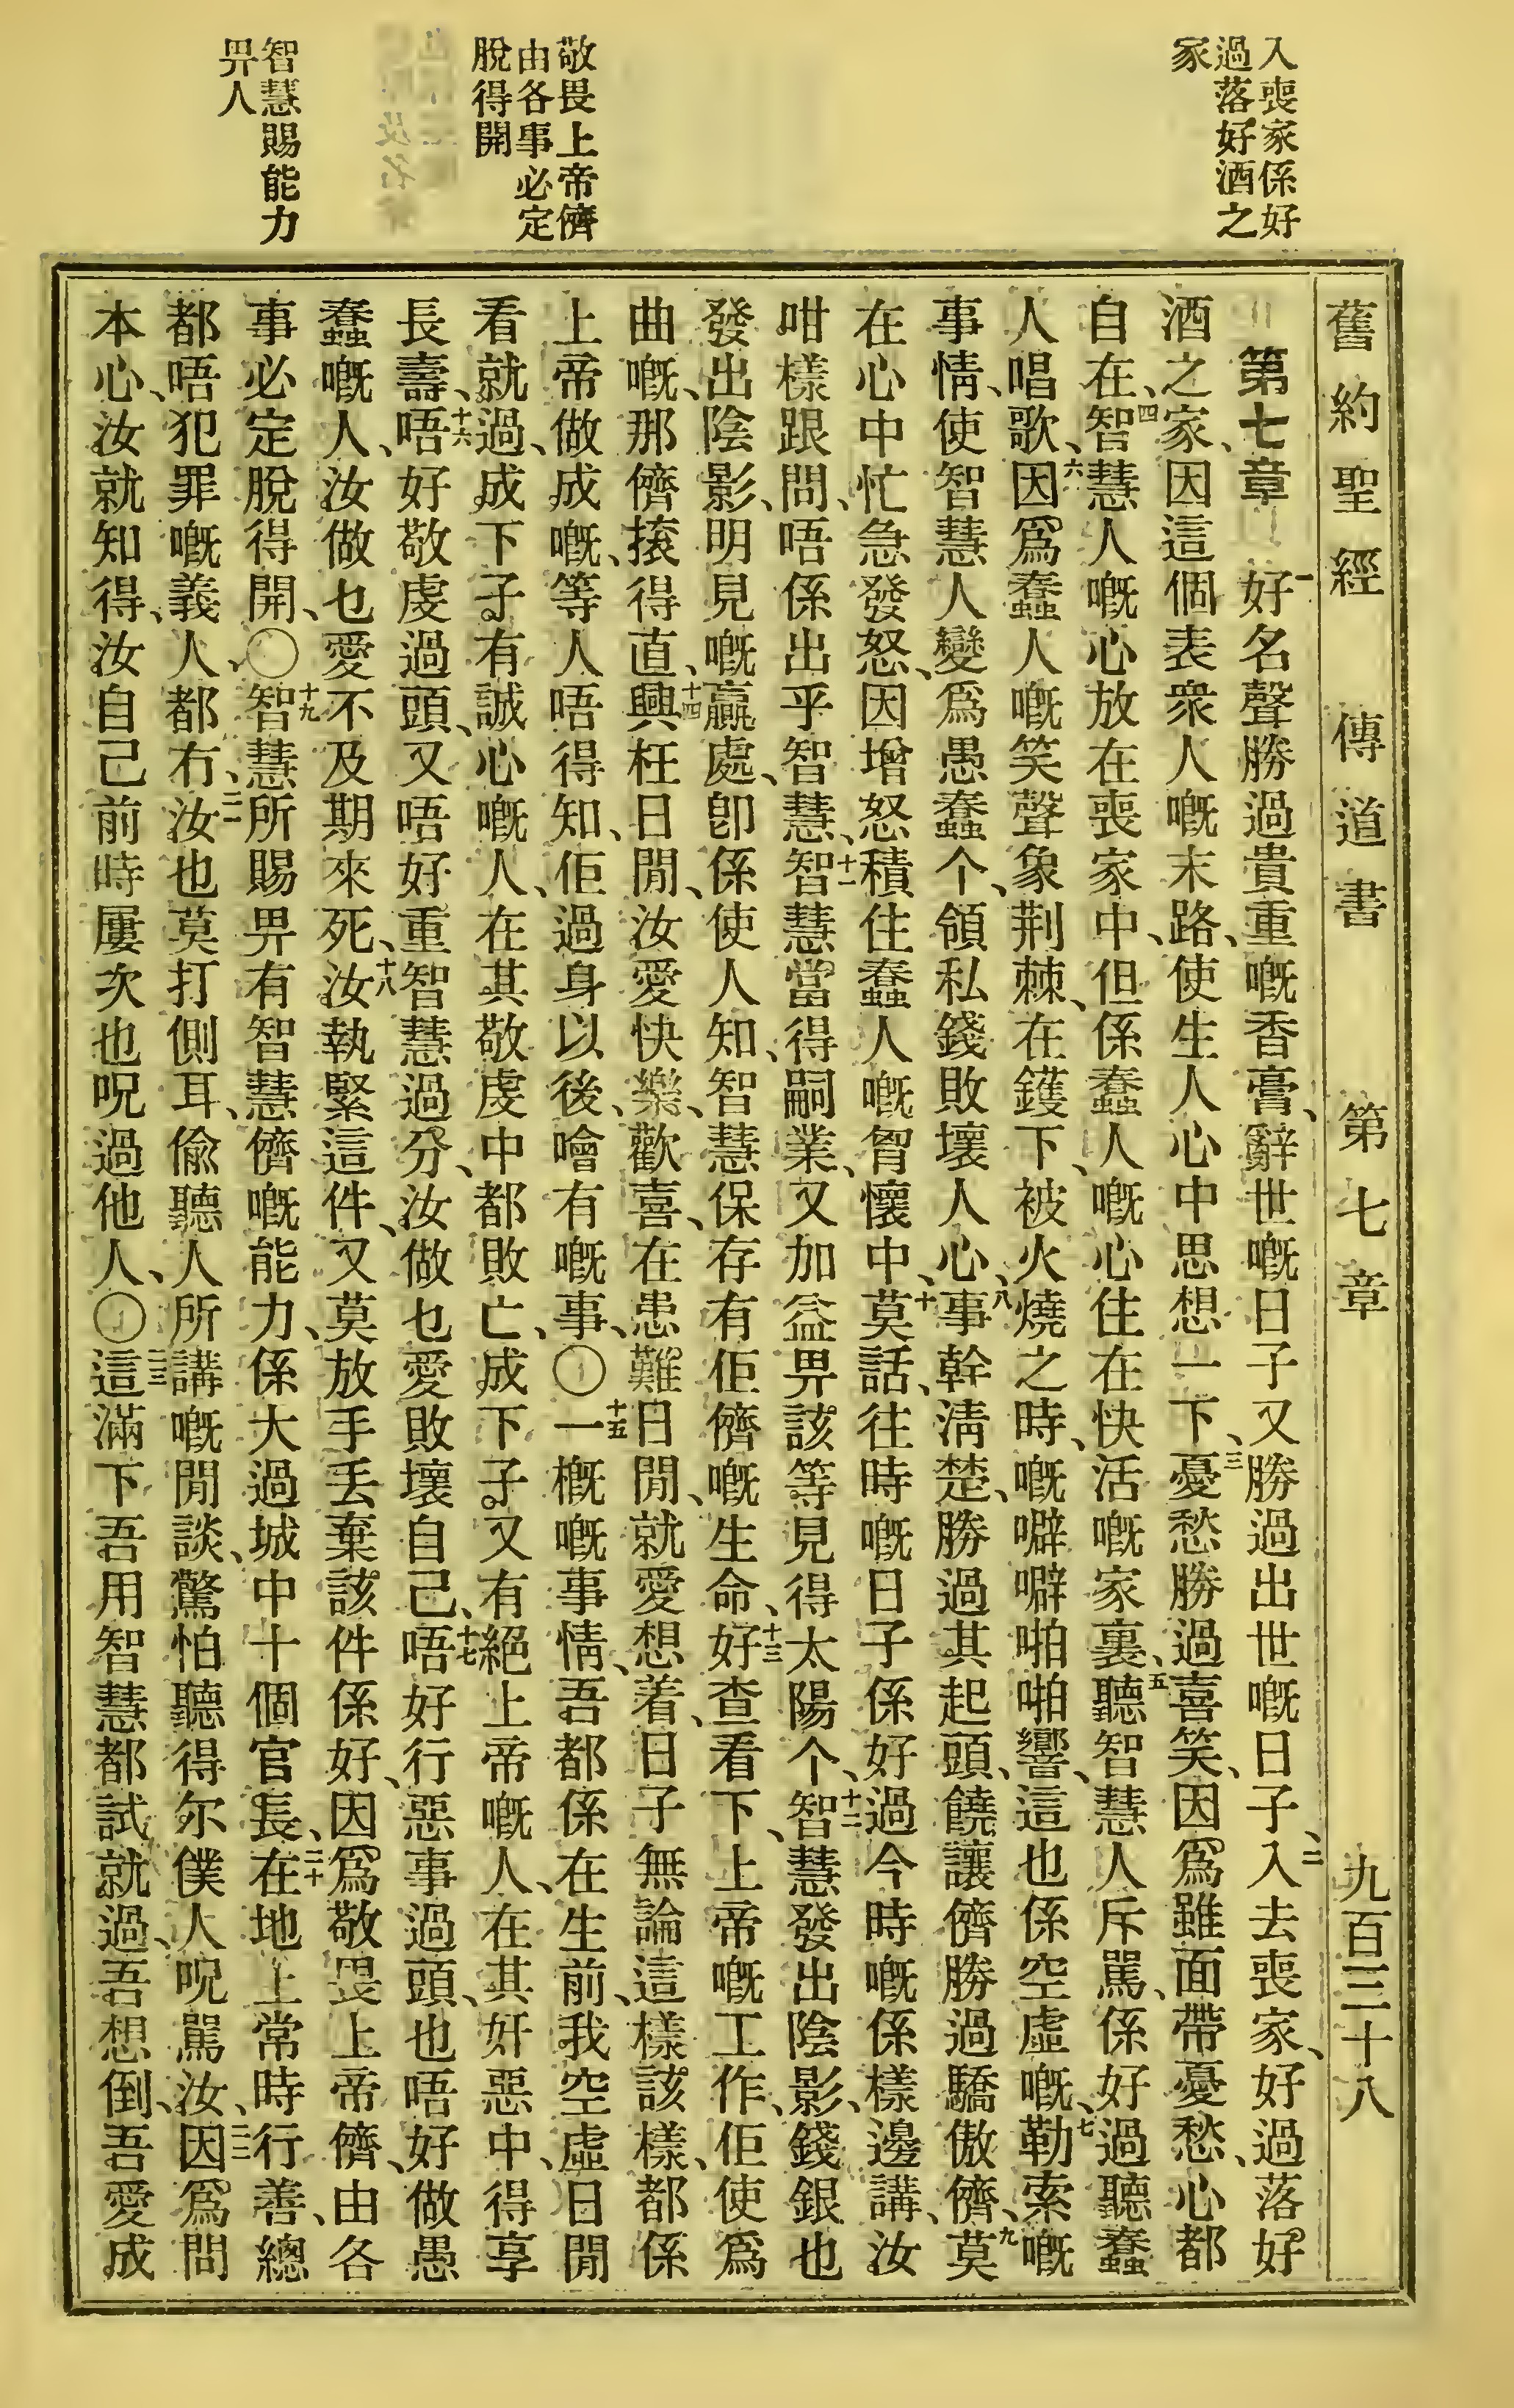 入喪家係好
過落好酒之
家
敬畏上帝儕
由各事必定
脫得開
智慧賜能力
畀人
舊約聖經　傳道書　第七章　九百三十八
第七章　一好名聲勝過貴重嘅香膏、辭世嘅日子又勝過出世嘅日子、二入去喪家、好過落好
酒之家、因這個表衆人嘅末路、使生人心中思想一下、三憂愁勝過喜笑、因爲雖面帶憂愁、心都
自在、四智慧人嘅心放在喪家中、但係蠢人嘅心住在快活嘅家裏、五聽智慧人斥駡、係好過聽蠢
人唱歌、六因爲蠢人嘅笑聲象荆棘、在鑊下、被火燒之時、嘅噼噼啪啪響、這也係空虛嘅、七勒索嘅
事情、使智慧人變爲愚蠢个、領私錢敗壞人心、八事幹淸楚、勝過其起頭、饒讓儕勝過驕傲儕、九莫
在心中忙急發怒、因增怒積住蠢人嘅胷懷中、十莫話、往時嘅日子係好過今時嘅係樣邊講、汝
咁樣跟問、唔係出乎智慧、十一智慧當得嗣業、又加益畀該等見得太陽个、十二智慧發出陰影、錢銀也
發出陰影、明見嘅贏處、卽係使人知、智慧保存有佢儕嘅生命、十三好查看下、上帝嘅工作、佢使爲
曲嘅、那儕㨢得直、十四興旺日閒、汝愛快樂、歡喜、在患難日閒、就愛想着、日子無論這樣該樣、都係
上帝做成嘅、等人唔得知、佢過身以後、噲有嘅事、〇十五一概嘅事情、吾都係在生前、我空虛日閒
看就過、成下子有誠心嘅人、在其敬虔中都敗亡、成下子又有絕上帝嘅人、在其奸惡中、得享
長壽、十六唔好敬虔過頭、又唔好重智慧過分、汝做乜愛敗壞自己、十七唔好行惡事過頭、也唔好做愚
蠢嘅人、汝做乜愛不及期來死、十八汝執緊這件、又莫放手丢棄該件係好、因爲敬畏上帝儕、由各
事必定脫得開、〇十九智慧所賜畀有智慧儕嘅能力、係大過城中十個官長、二十在地上常時行善、總
都唔犯罪嘅義人、都冇、二一汝也莫打側耳、偸聽人所講嘅閒談、驚怕聽得尔僕人呪駡汝、二二因爲問
本心、汝就知得、汝自己前時屢次也呪過他人、〇二三這滿下吾用智慧都試就過、吾想倒、吾愛成